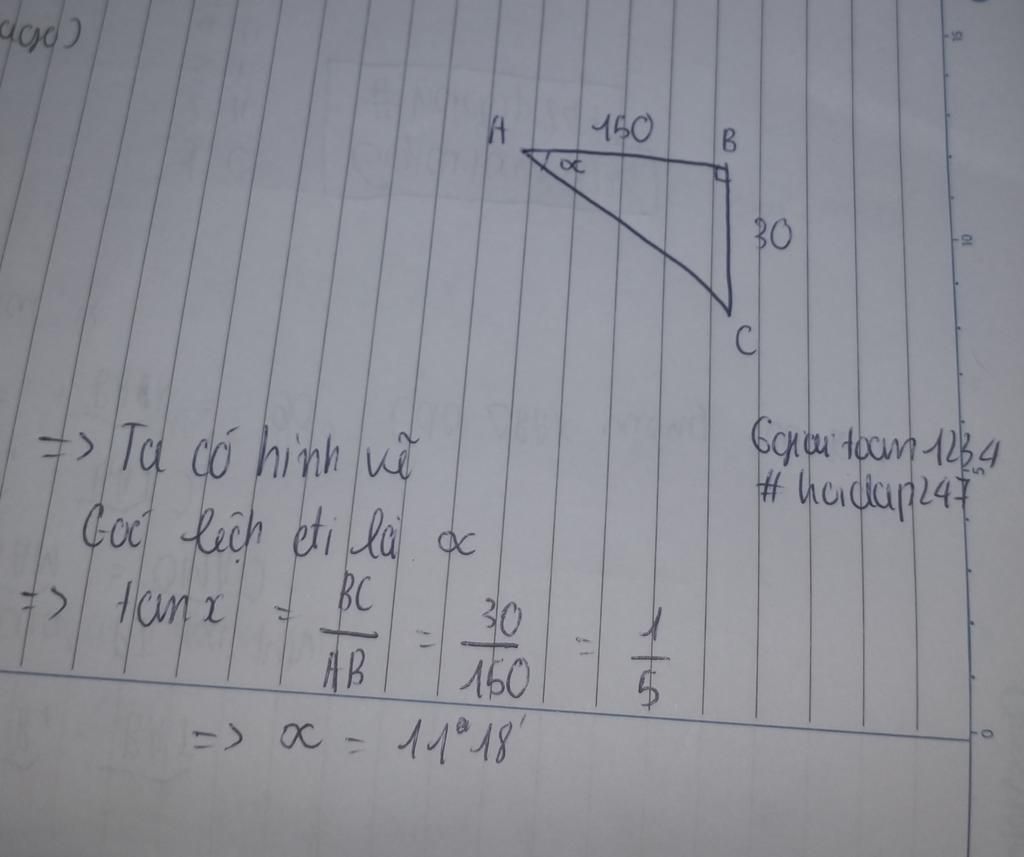 A 150 B
α
30
C
=> Ta có hình vẽ
Góc lệch đi là α
=> tan x = BC/AB = 30/150 = 1/5
=> α = 11°18'
toan 1234
# hoidap247
15
10
5
0